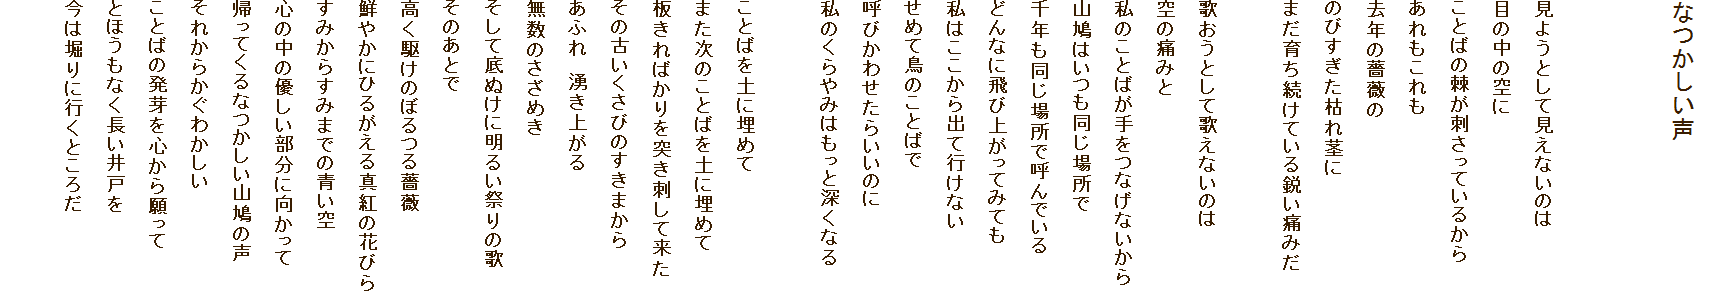 なつかしい声
見ようとして見えないのは
目の中の空に
ことばの棘が刺さっているから
あれもこれも
去年の薔薇の
のびすぎた枯れ茎に
まだ育ち続けている鋭い痛みだ
歌おうとして歌えないのは
空の痛みと
私のことばが手をつなげないから
山鳩はいつも同じ場所で
千年も同じ場所で呼んでいる
どんなに飛び上がってみても
私はここから出て行けない
せめて鳥のことばで
呼びかわせたらいいのに
私のくらやみはもっと深くなる
ことばを土に埋めて
また次のことばを土に埋めて
板きればかりを突き刺して来た
その古いくさびのすきまから
あふれ 湧き上がる
無数のさざめき
そして底ぬけに明るい祭りの歌
そのあとで
高く駆けのぼるつる薔薇
鮮やかにひるがえる真紅の花びら
すみからすみまでの青い空
心の中の優しい部分に向かって
帰ってくるなつかしい山鳩の声
それからかぐわかしい
ことばの発芽を心から願って
とほうもなく長い井戸を
今は堀りに行くところだ